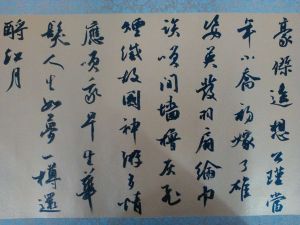 豪傑遥想公瑾當
年小喬初嫁了雄
姿英發羽扇綸巾
談笑间檣櫓灰飛
煙滅故國神游多情
應笑我早生華
髮人生如夢一樽還
酹江月